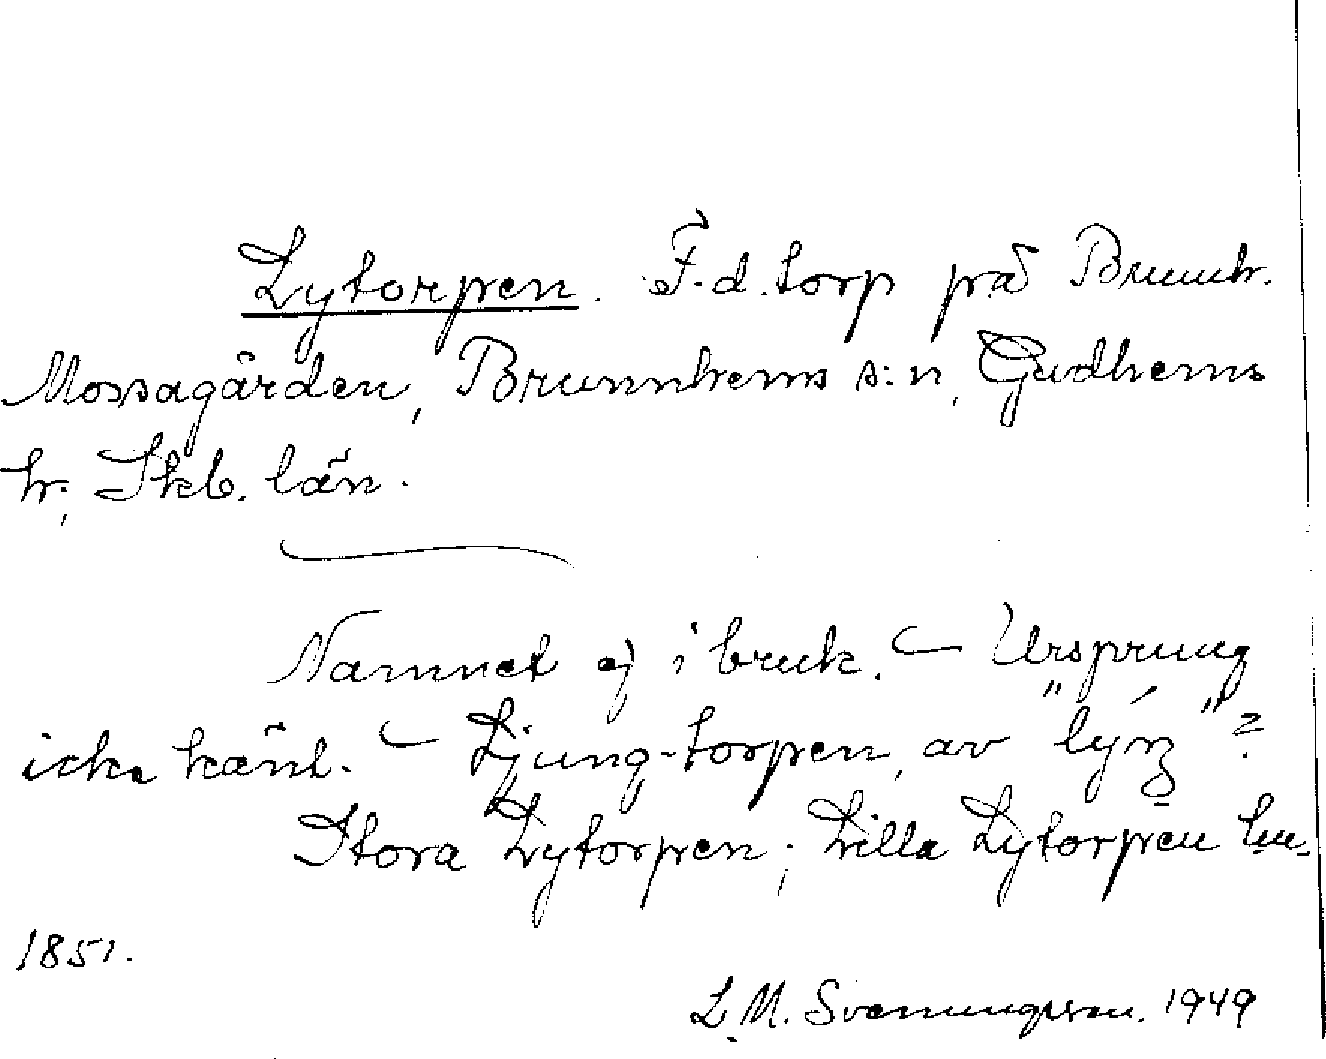 Lytorpen. F.d. torp på Brunnh.
Mossagården, Brunnhems s:n, Gudhems
hr, Skb. län.
Namnet ej i bruk. — Ursprung
icke känt. — Ljung-torpen, av "lýŋ"?
Stora Lytorpen; Lilla Lytorpen
1851.
L. M. Svenungsson. 1949